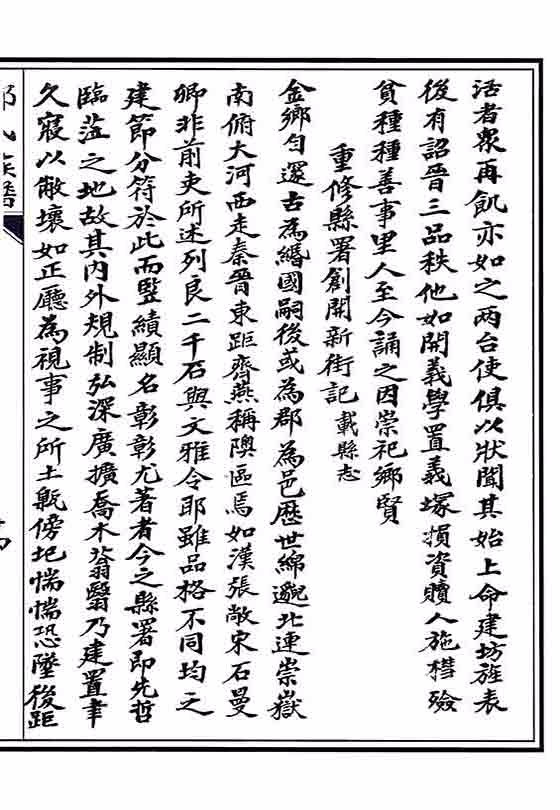 活者衆再飢亦如之两台使俱以狀聞其始上命建坊旌表
後有詔晉三品秩他如開義學置義塚損資贖人施槥殮
貧種種善事里人至今誦之因崇祀鄉賢
重修縣署創開新街記 載縣志
金鄉勻還古為緡國嗣後或為郡為邑歷世綿邈北連崇嶽
南俯大河西走秦晉東距齊燕稱隩區焉如漢張敞宋石曼
卿非前吏所述列良二千石與文雅令耶雖品格不同均之
建節分符於此而豎績顯名彰彰尤著者今之縣署即先哲
臨莅之地故其內外規制弘深廣擴喬木蓊翳乃建置聿
久寢以敝壞如正廳為視事之所土甎傍圮惴惴恐墜後距
氏族譜